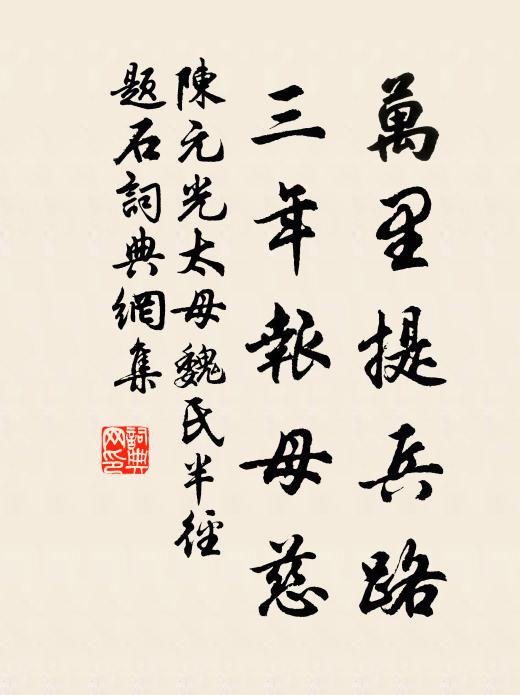 萬里提兵路
三年報母慈
陳元光太母魏氏半徑
題石詞典網集
詞典網印